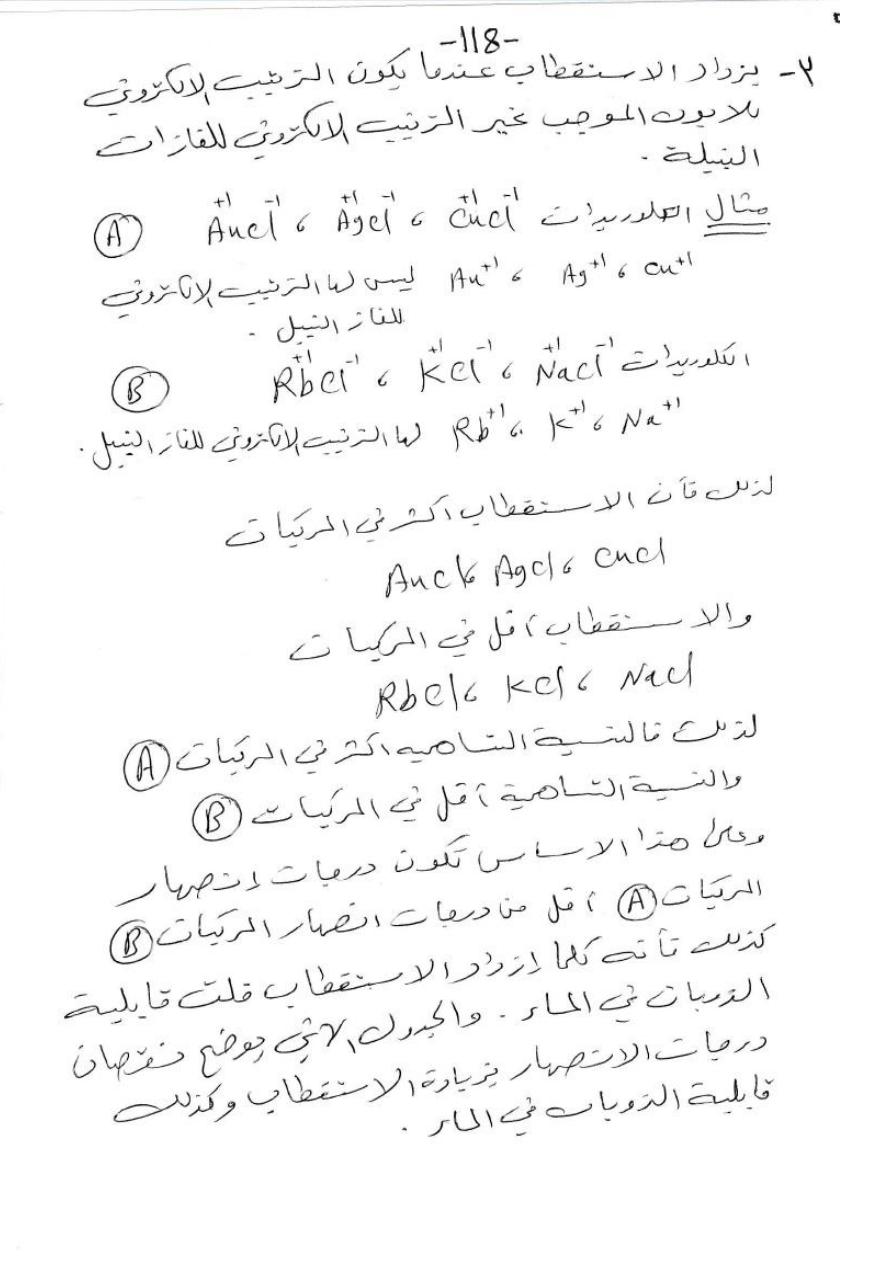 -118-
٣- يزداد الاستقطاب عندما يكون الترتيب الالكتروني
للايون الموجب غير الترتيب الالكتروني للغازات
النبيلة .
مثال الكلوريدات Cu⁺¹Cl⁻¹ ، Ag⁺¹Cl⁻¹ ، Au⁺¹Cl⁻¹ (A)
Cu⁺¹ ، Ag⁺¹ ، Au⁺¹ ليس لها الترتيب الالكتروني
للغاز النبيل .
الكلوريدات Na⁺¹Cl⁻¹ ، K⁺¹Cl⁻¹ ، Rb⁺¹Cl⁻¹ (B)
Na⁺¹ ، K⁺¹ ، Rb⁺¹ لها الترتيب الالكتروني للغاز النبيل .
لذلك فأن الاستقطاب أكثر في المركبات
CuCl ، AgCl ، AuCl
والاستقطاب أقل في المركبات
NaCl ، KCl ، RbCl
لذلك فالنسبة التساهمية أكثر في المركبات (A)
والنسبة التساهمية أقل في المركبات (B)
وعلى هذا الاساس تكون درجات إنصهار
المركبات (A) أقل من درجات انصهار المركبات (B)
كذلك فأنه كلما إزداد الاستقطاب قلت قابلية
الذوبان في الماء . والجدول الاتي يوضح نقصان
درجات الانصهار بزيادة الاستقطاب وكذلك
قابلية الذوبان في الماء .